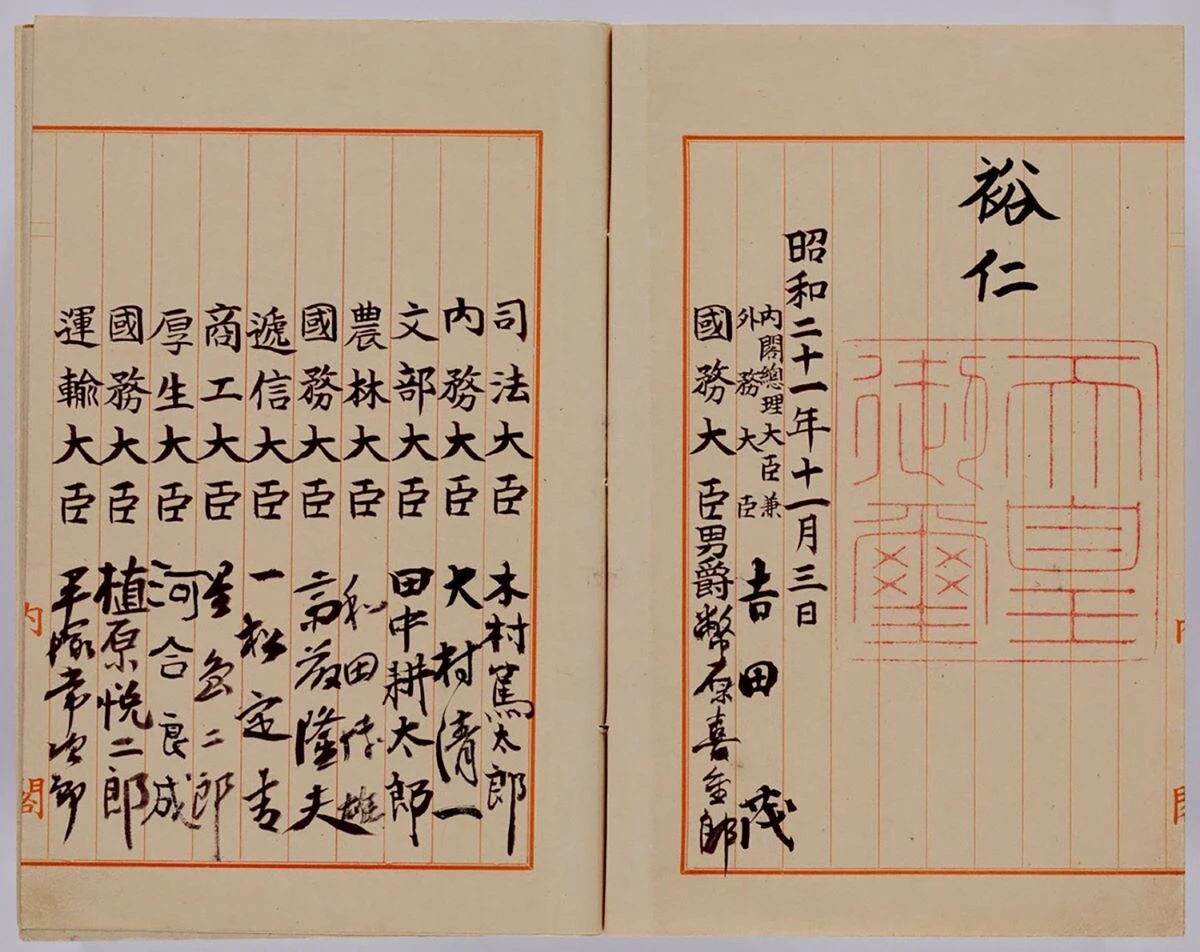 裕仁
天皇御璽
昭和二十一年十一月三日
内閣總理大臣兼
外務大臣
吉田茂
國務大臣男爵幣原喜重郎
司法大臣木村篤太郎
内務大臣大村清一
文部大臣田中耕太郎
農林大臣和田博雄
國務大臣斎藤隆夫
遞信大臣一松定吉
商工大臣星島二郎
厚生大臣河合良成
國務大臣植原悦二郎
運輸大臣平塚常次郎
内閣